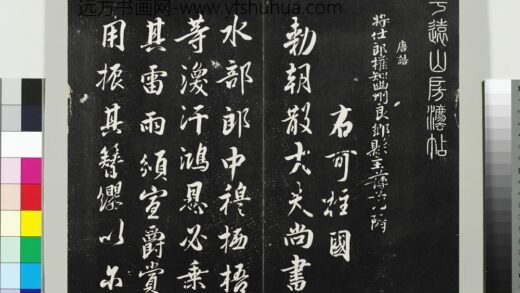 远方书画网-www.yfshuhua.com
遠山房灋帖
唐誥
將仕郎權知幽州良鄉縣主簿范隋
右可柱國
勅朝散大夫尚書
水部郎中穆栖梧
等渙汗鴻恩必乘
其雷雨頒宣爵賞
用振其簪纓以尔